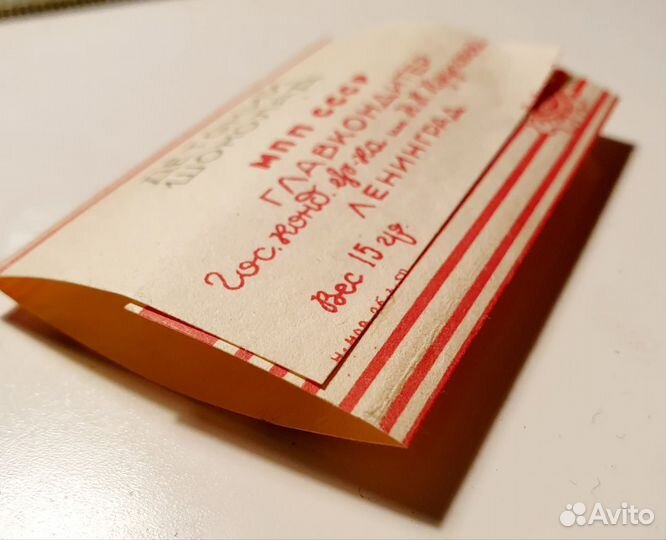 ДЕТСКИЙ
ШОКОЛАД
МПП СССР
ГЛАВКОНДИТЕР
Гос. конд. ф-ка им. Н.К. Крупской
ЛЕНИНГРАД
Вес 15 гр.
Avito